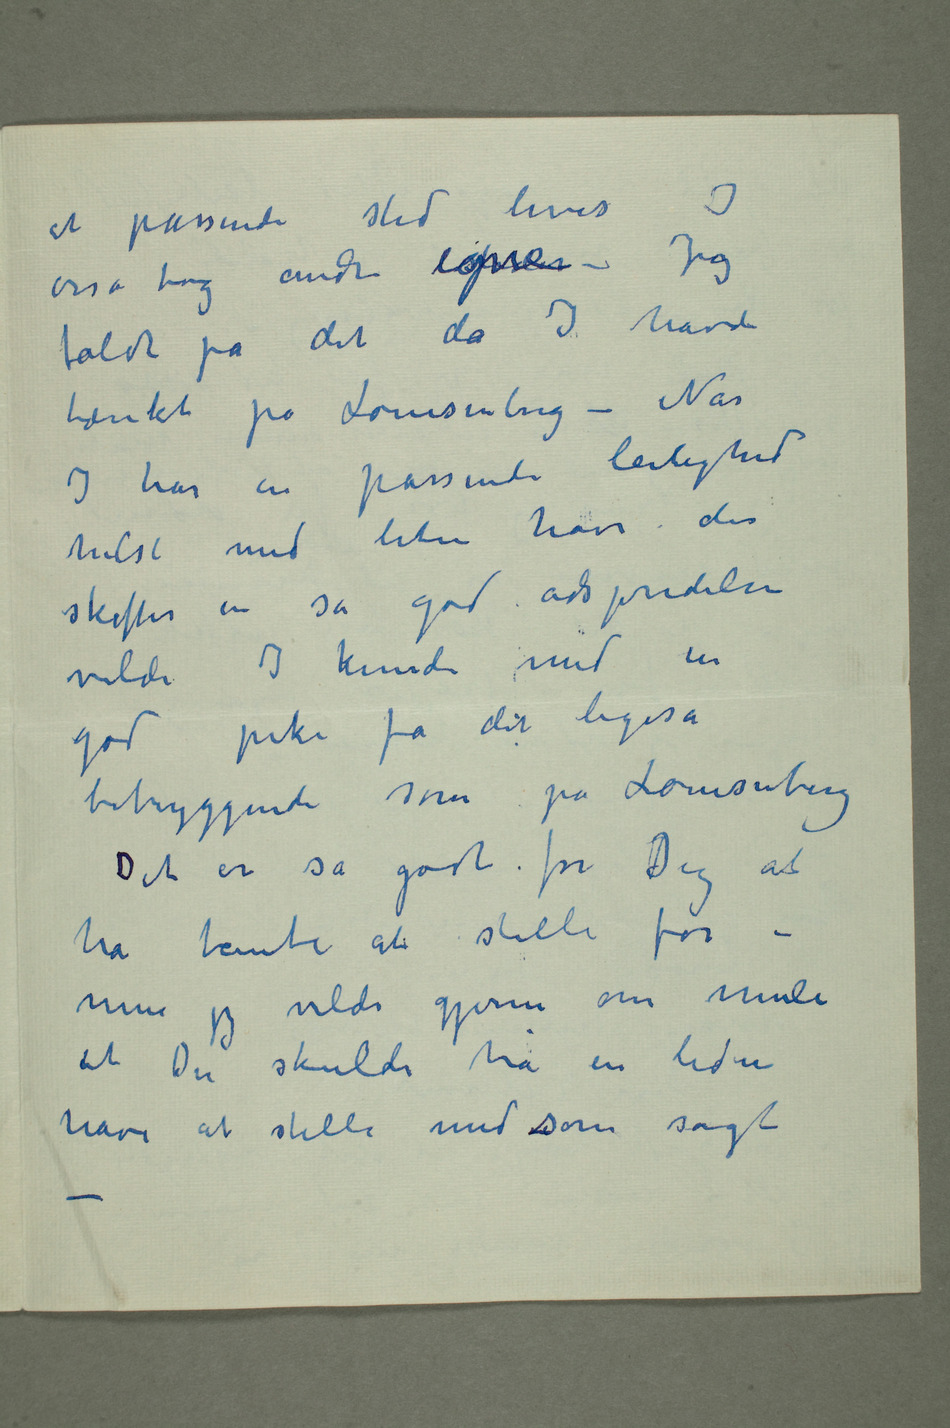 et passende sted hvis I
også tog andre –  Jeg
faldt på det da I havde
tænkt på Louisenberg – Når
I har en passende leilighed
helst med liten have der
skaffer en så god adspredelse
vilde I kunde med en
god pike få det ligeså
betryggende som på Louisenberg
Det er så godt for Dig at
ha tante at stelle for –
men jeg vilde gjerne om
at Du skulde ha en liden
have at stelle med som sagt
—